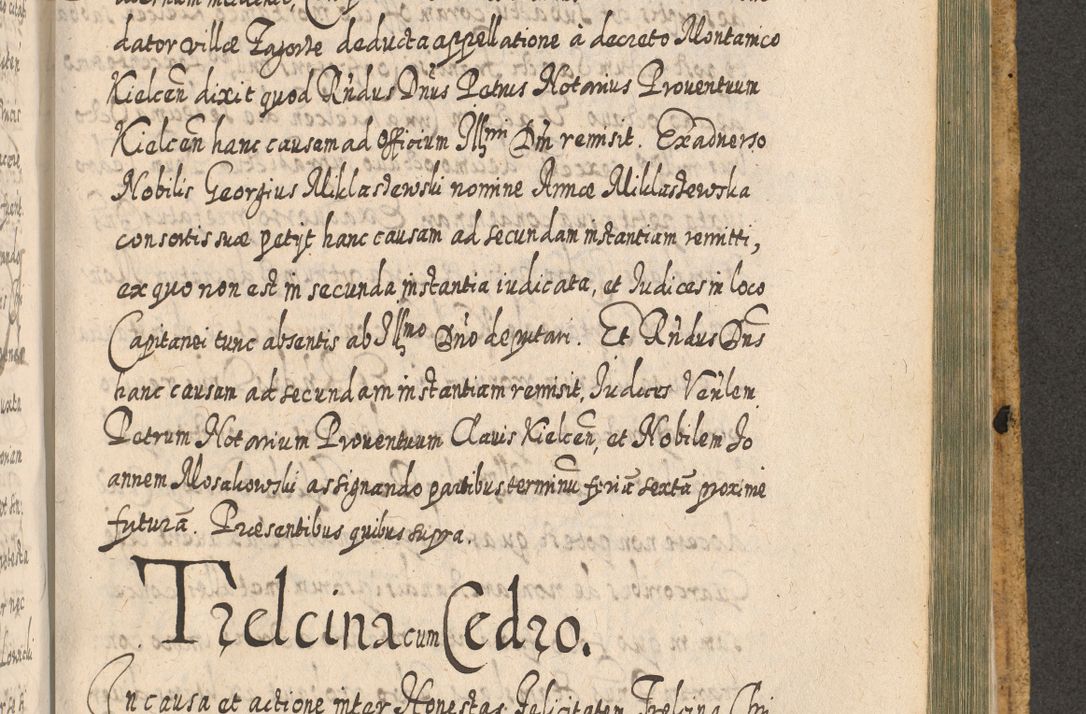 dator villæ Zagorze deducta appellatione à decreto Montanico
Kielceñ dixit quod Rndus Dnus Petrus Notarius Proventuum
Kielceñ hanc causam ad Officium Illmi Dni remisit. Exadverso
Nobilis Georgius Miklaszewski nomine Annæ Miklaszewska
consortis suæ petijt hanc causam ad secundam instantiam remitti,
ex quo non est in secunda instantia iudicata, et Iudices in loco
Capitanei tunc absentis ab Illmo Dno deputari. Et Rndus Dns
hanc causam ad secundam instantiam remisit, Iudices Venlem
Petrum Notarium Proventuum Clavis Kielceñ, et Nobilem Jo
annem Mosakowski assignando partibus terminū feriā sextā proxime
futurā. Præsentibus quibus supra.
Trzelcina cum Cedro.
In causa et actione inter Honestas Felicitatem Trzelcina